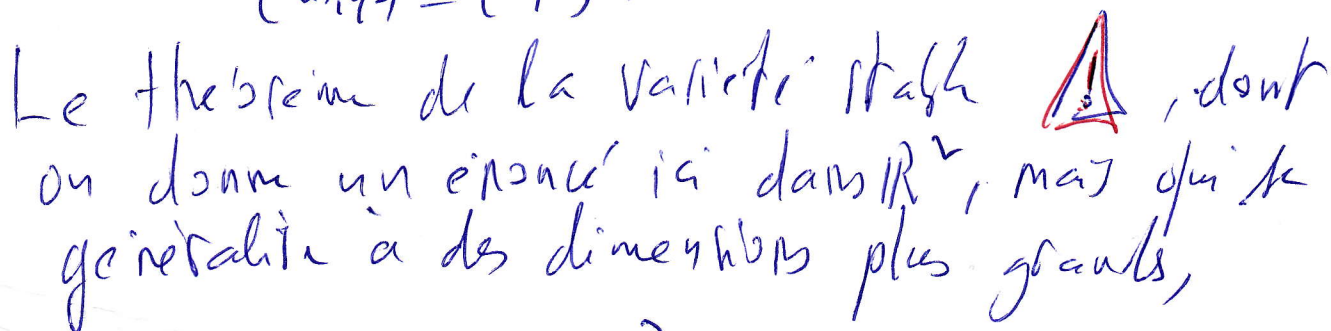 Le théorème de la variété stable ⚠, dont
on donne un énoncé ici dans ℝ², mais qui se
généralise à des dimensions plus grands,